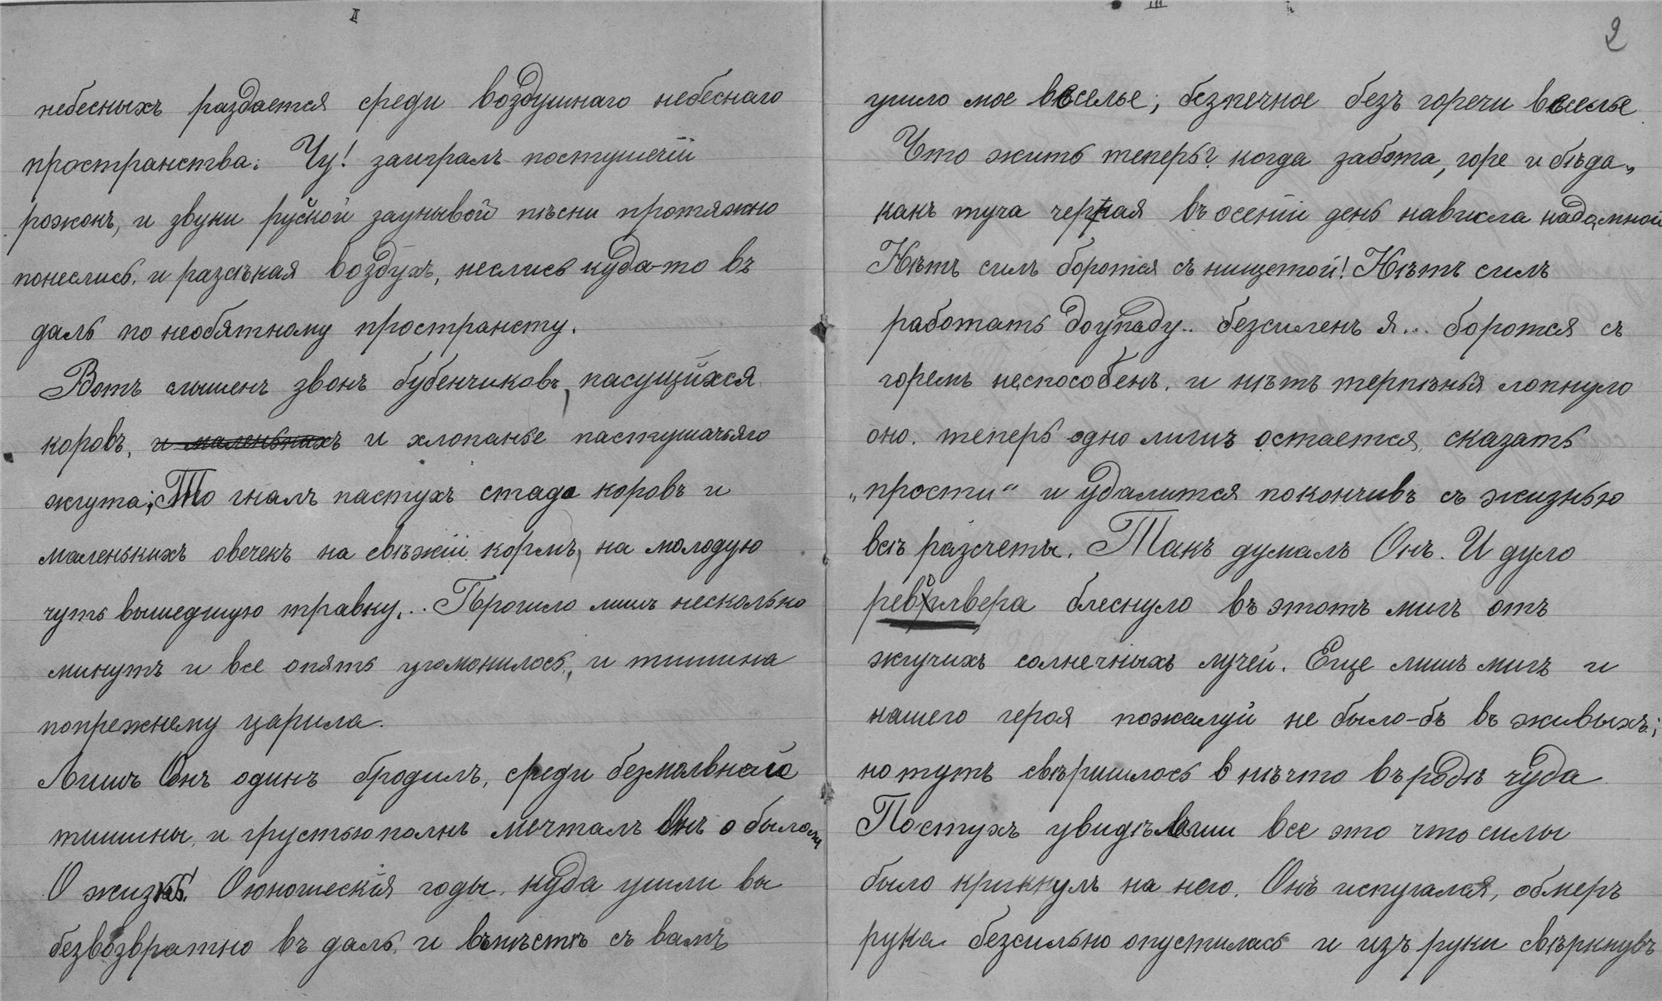 II
небесныхъ раздается среди воздушнаго небеснаго
пространства. Чу! заигралъ постушечій
рожокъ, и звуки руской заунывой пѣсни протяжно
понеслись, и разсѣкая воздухъ, неслись куда-то въ
даль по необятному пространсту.
Вотъ слышенъ звонъ бубенчиковъ, пасущійхся
коровъ, и маленькихъ и хлопанье пастушачьяго
жгута; То гналъ пастухъ стадо коровъ и
маленькихъ овечекъ на свѣжій кормъ, на молодую
чуть вышедшую травку... Прошло лишь несколько
минутъ и все опять угомонилось, и тишина
попрежнему царила.
Лишь Онъ одинъ бродилъ, среди безмолвной
тишины, и грустью полнъ мечталъ Онъ о быломъ
О жизнь! О юношескія годы, куда ушли вы
безвозвратно въ даль, и вмѣстѣ съ вамъ
III
2
ушло мое веселье, безпечное безъ горечи веселье.
Что жить теперь? когда забота, горе и бѣда,
какъ туча черная въ осеній день нависла надо мной
Нѣтъ силъ боротся съ нищетой! Нѣтъ силъ
работать доупаду.. безсиленъ я... боротся съ
горемъ неспособенъ, и нѣтъ терпѣнья лопнуло
оно. теперь одно лишь остается, сказать
„прости“ и удалится покончивъ съ жизнью
всѣ разсчеты. Такъ думалъ Онъ. И дуло
револвера блеснуло въ этотъ мигъ отъ
жгучихъ солнечныхъ лучей. Еще лишь мигъ и
нашего героя пожалуй не было-бъ въ живыхъ;
но тутъ свѣршилось в нѣчто въ родѣ чуда
Постухъ увидѣвши все это что силы
было крикнулъ на него. Онъ испугался, обмеръ
рука безсильно опустилась и изъ руки свѣркнувъ